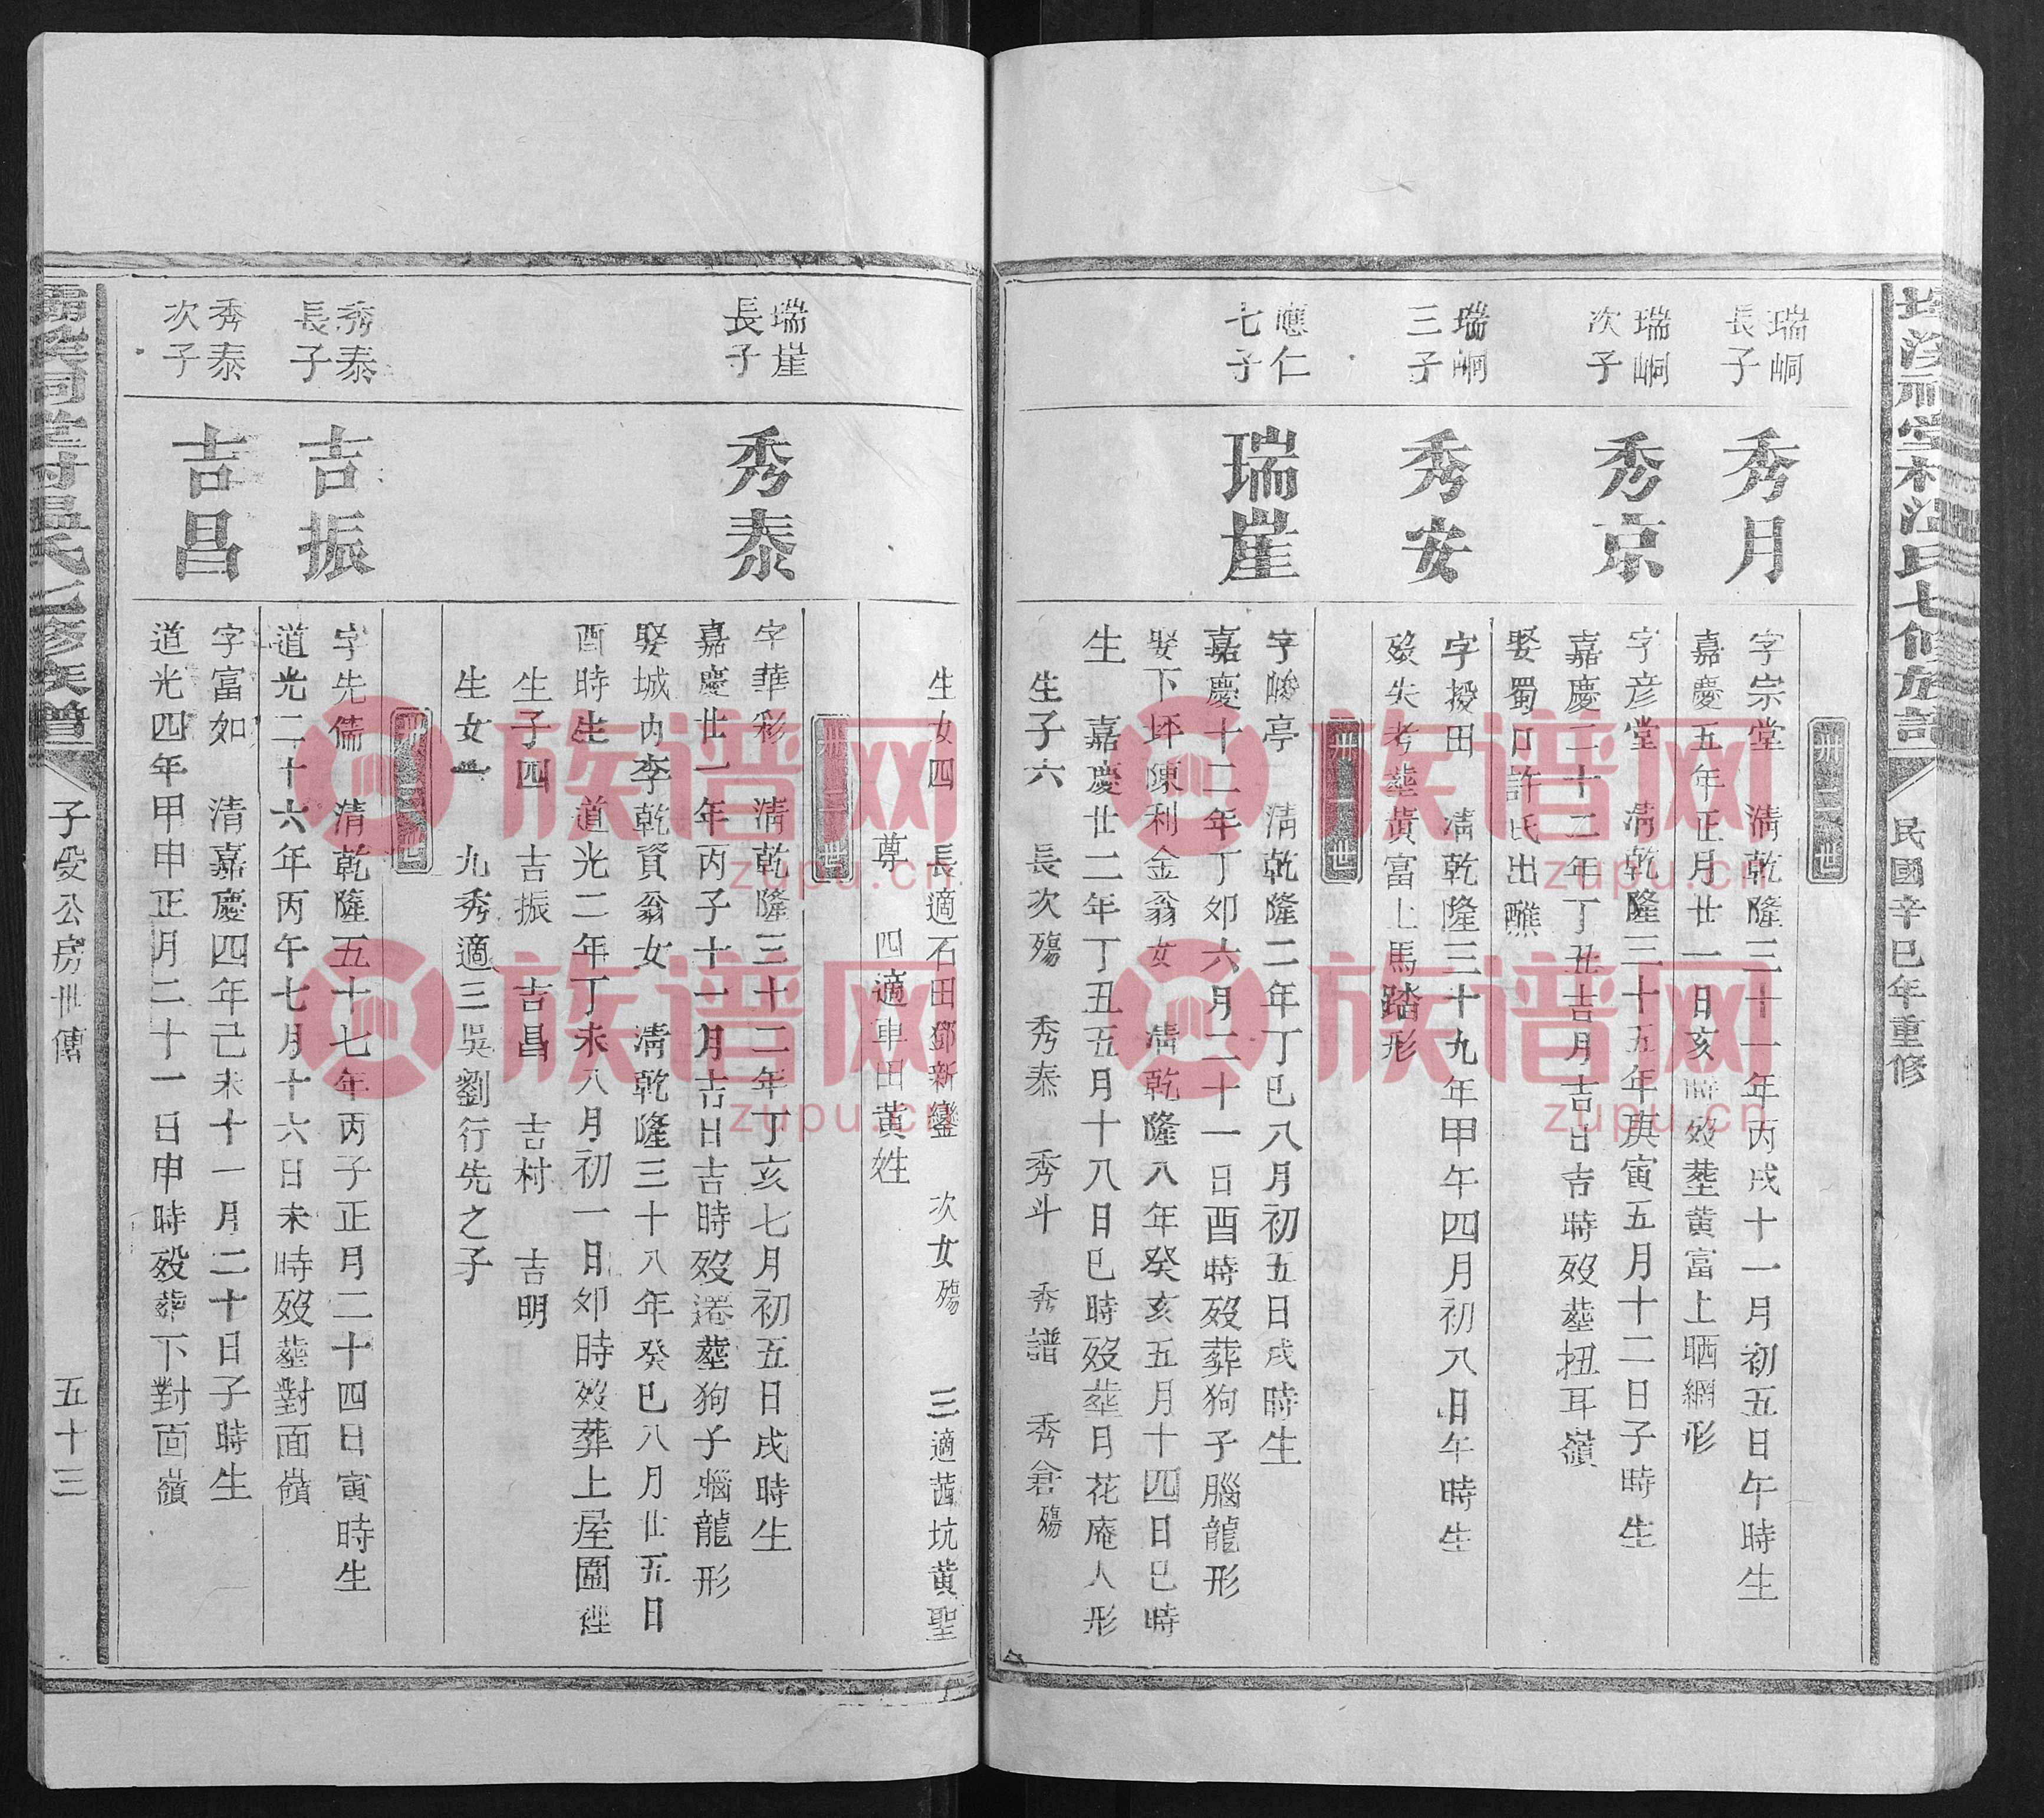 溫氏七修族譜
民國辛巳年重修
卅二世
瑞峒長子
秀月
字宗堂 清乾隆三十一年丙戌十一月初五日午時生
嘉慶五年正月廿一日亥時歿塟黄富上晒網形
瑞峒次子
秀京
字彦堂 清乾隆三十五年庚寅五月十二日子時生
嘉慶二十二年丁丑吉月吉日吉時歿塟扭耳嶺
娶蜀口許氏出醮
瑞峒三子
秀安
字授田 清乾隆三十九年甲午四月初八日午時生
歿失考塟黄富上馬踏形
卅一世
應仁七子
瑞崖
字峻亭 清乾隆二年丁巳八月初五日戌時生
嘉慶十二年丁卯六月二十一日酉時歿葬狗子腦龍形
娶下坪陳利金翁女 清乾隆八年癸亥五月十四日巳時
生 嘉慶廿二年丁丑五月十八日巳時歿塟月花庵人形
生子六 長次殤 秀泰 秀斗 秀譜 秀倉殤
生女四 長適石田鄧新鑾 次女殤 三適茜坑黄聖
尊 四適車田黄姓
卅二世
瑞崖長子
秀泰
字華彩 清乾隆三十二年丁亥七月初五日戌時生
嘉慶廿一年丙子十一月吉日吉時歿遷塟狗子蝻龍形
娶城内李乾資翁女 清乾隆三十八年癸巳八月廿五日
酉時生 道光二年丁未八月初一日卯時歿葬上屋圍裡
生子四 吉振 吉昌 吉村 吉明
生女一 九秀適三吳劉行先之子
卅三世
秀泰長子
吉振
字先儒 清乾隆五十七年丙子正月二十四日寅時生
道光二十六年丙午七月十六日未時歿塟對面嶺
秀泰次子
吉昌
字富如 清嘉慶四年己未十一月二十日子時生
道光四年甲申正月二十一日申時歿葬下對面嶺
祠堂村溫氏七修族譜
子受公房世傳
五十三
族谱网
zupu.cn
族谱网
zupu.cn
族谱网
zupu.cn
族谱网
zupu.cn